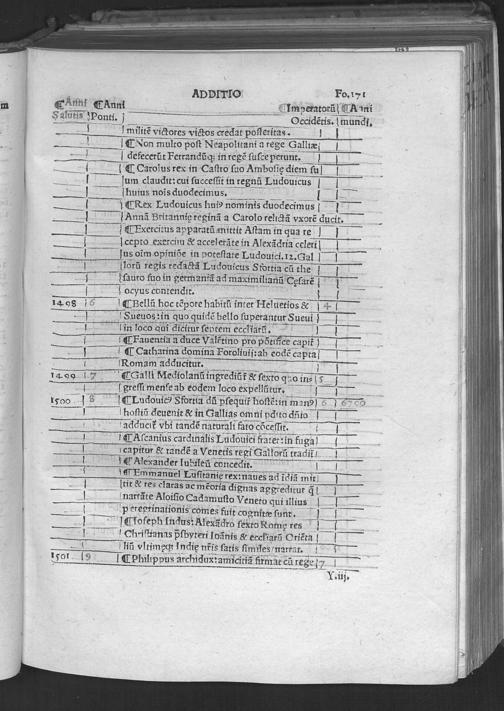 ADDITIO Fo.171
¶Anni ¶Anni Imperatorũ ¶Anni
Salutis Ponti. Occidẽtis. mundi.
militẽ victores victos credat posteritas.
¶Non multo post Neapolitani a rege Galliæ
desecerũt Ferrandũq; in regẽ susceperunt.
¶Carolus rex in Castro suo Ambosię diem su
um claudit: cui successit in regnũ Ludouicus
huius nois duodecimus.
¶Rex Ludouicus huiꝰ nominis duodecimus
Annã Britannię reginã a Carolo relictã vxorẽ ducit.
¶Exercitus apparatũ mittit Astam in qua re
cepto exercitu & accelerãte in Alexãdria celeri
us oĩm opiniõe in potestate Ludouici.12. Gal
lorũ regis redactã Ludouicus Sfortia cũ the
sauro suo in germaniã ad maximilianũ Cęsarẽ
ocyus contendit.
1498 6 ¶Bellũ hoc tẽpore habitũ inter Heluetios & 4
Sueuos: in quo quidẽ bello superantur Sueui
in loco qui dicitur septem eccliarũ.
¶Fauentia a duce Valẽtino pro põtifice capit̃
¶Catharina domina Foroliuij: ab eodẽ capta
Romam adducitur.
1499 7 ¶Galli Mediolanũ ingrediũt̃ & sexto quo ins 5
gressi mense ab eodem loco expellũtur.
1500 8 ¶Ludouicꝰ Sfortia dũ psequit̃ hostẽ: in manꝰ 6 6700
hostiũ deuenit & in Gallias omni pdito dñio
adducit̃ vbi tandẽ naturali fato cõcessit.
¶Ascanius cardinalis Ludouici frater: in fuga
capitur & tandẽ a Venetis regi Gallorũ tradit̃
¶Alexander Iubileũ concedit.
¶Emmanuel Lusitanię rex: naues ad ĩdiã mit
tit & res claras ac mẽoria dignas aggreditur q̃
narrãte Aloisio Cadamusto Veneto qui illius
peregrinationis comes fuit cognitæ sunt.
¶Ioseph Indus: Alexãdro sexto Romę res
Christianas p̃sbyteri Ioãnis & eccliarũ Oriẽta
liũ vltimęq; Indię nr̃is satis similes: narrat.
1501 9 ¶Philippus archidux: amicitiã firmat cũ rege 7
Y.iij.